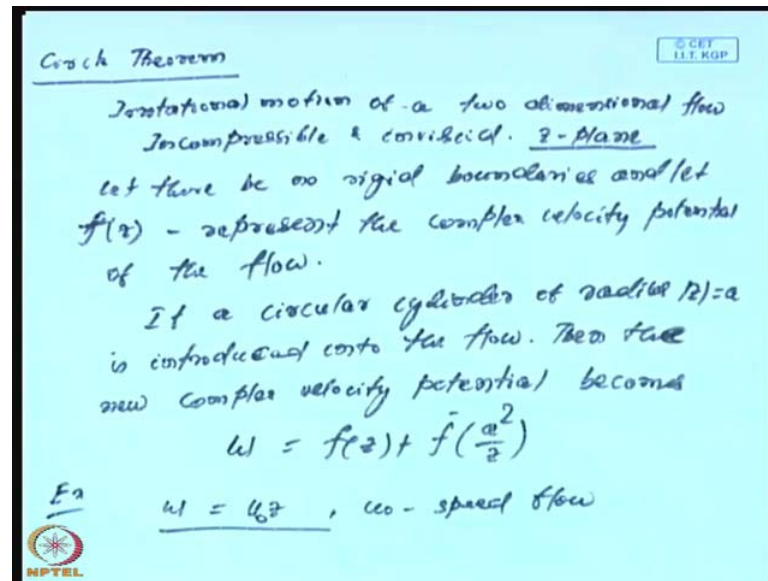 Circle Theorem
© CET
I.I.T. KGP
Irrotational motion of a two dimensional flow
Incompressible & inviscid. z-plane
let there be no rigid boundaries and let
f(z) - represent the complex velocity potential
of the flow.
If a circular cylinder of radius |z|=a
is introduced into the flow. Then the
new complex velocity potential becomes
w = f(z) + f̄(a²/z)
Ex w = u₀z , u₀ - speed flow
NPTEL